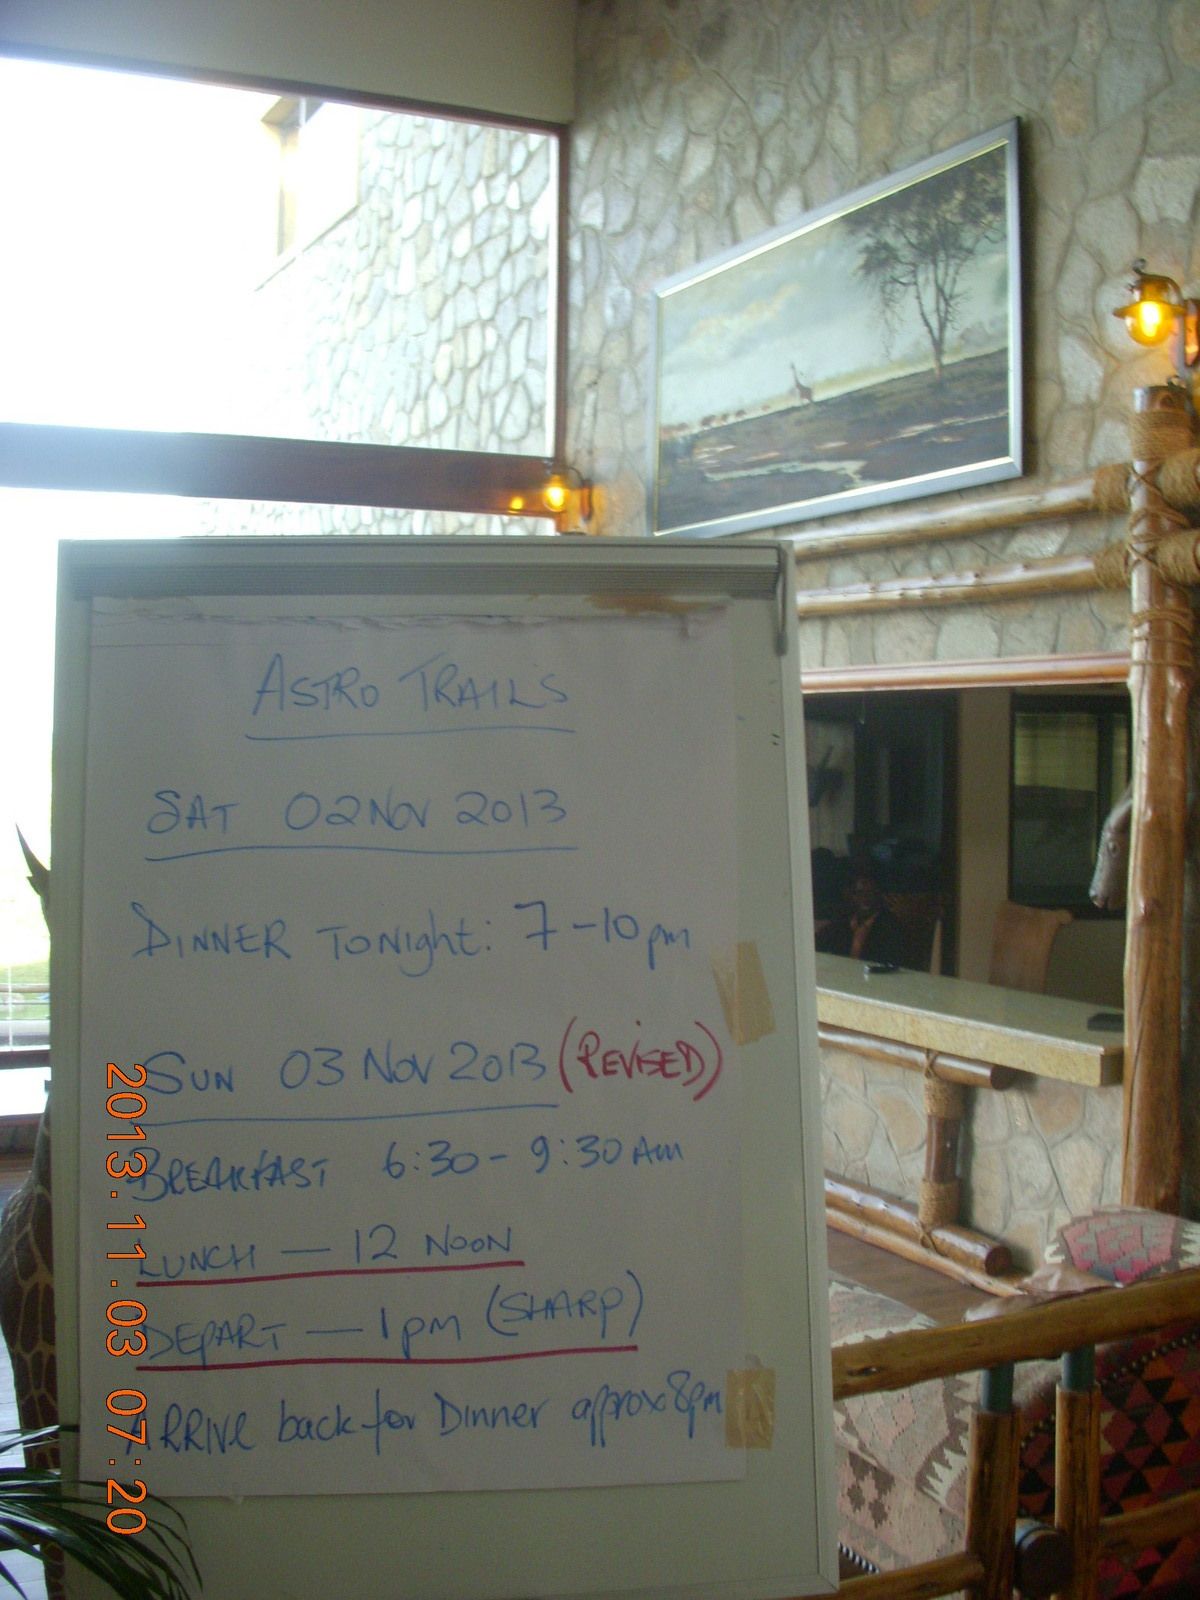 ASTRO TRAILS
SAT 02 NOV 2013
DINNER TONight: 7-10pm
SUN 03 NOV 2013 (REViSED)
BREAKFAST 6:30 - 9:30 AM
LUNCH — 12 NOON
DEPART — 1pm (SHARP)
ARRIVE back for Dinner approx 8pm
2013.11.03 07:20